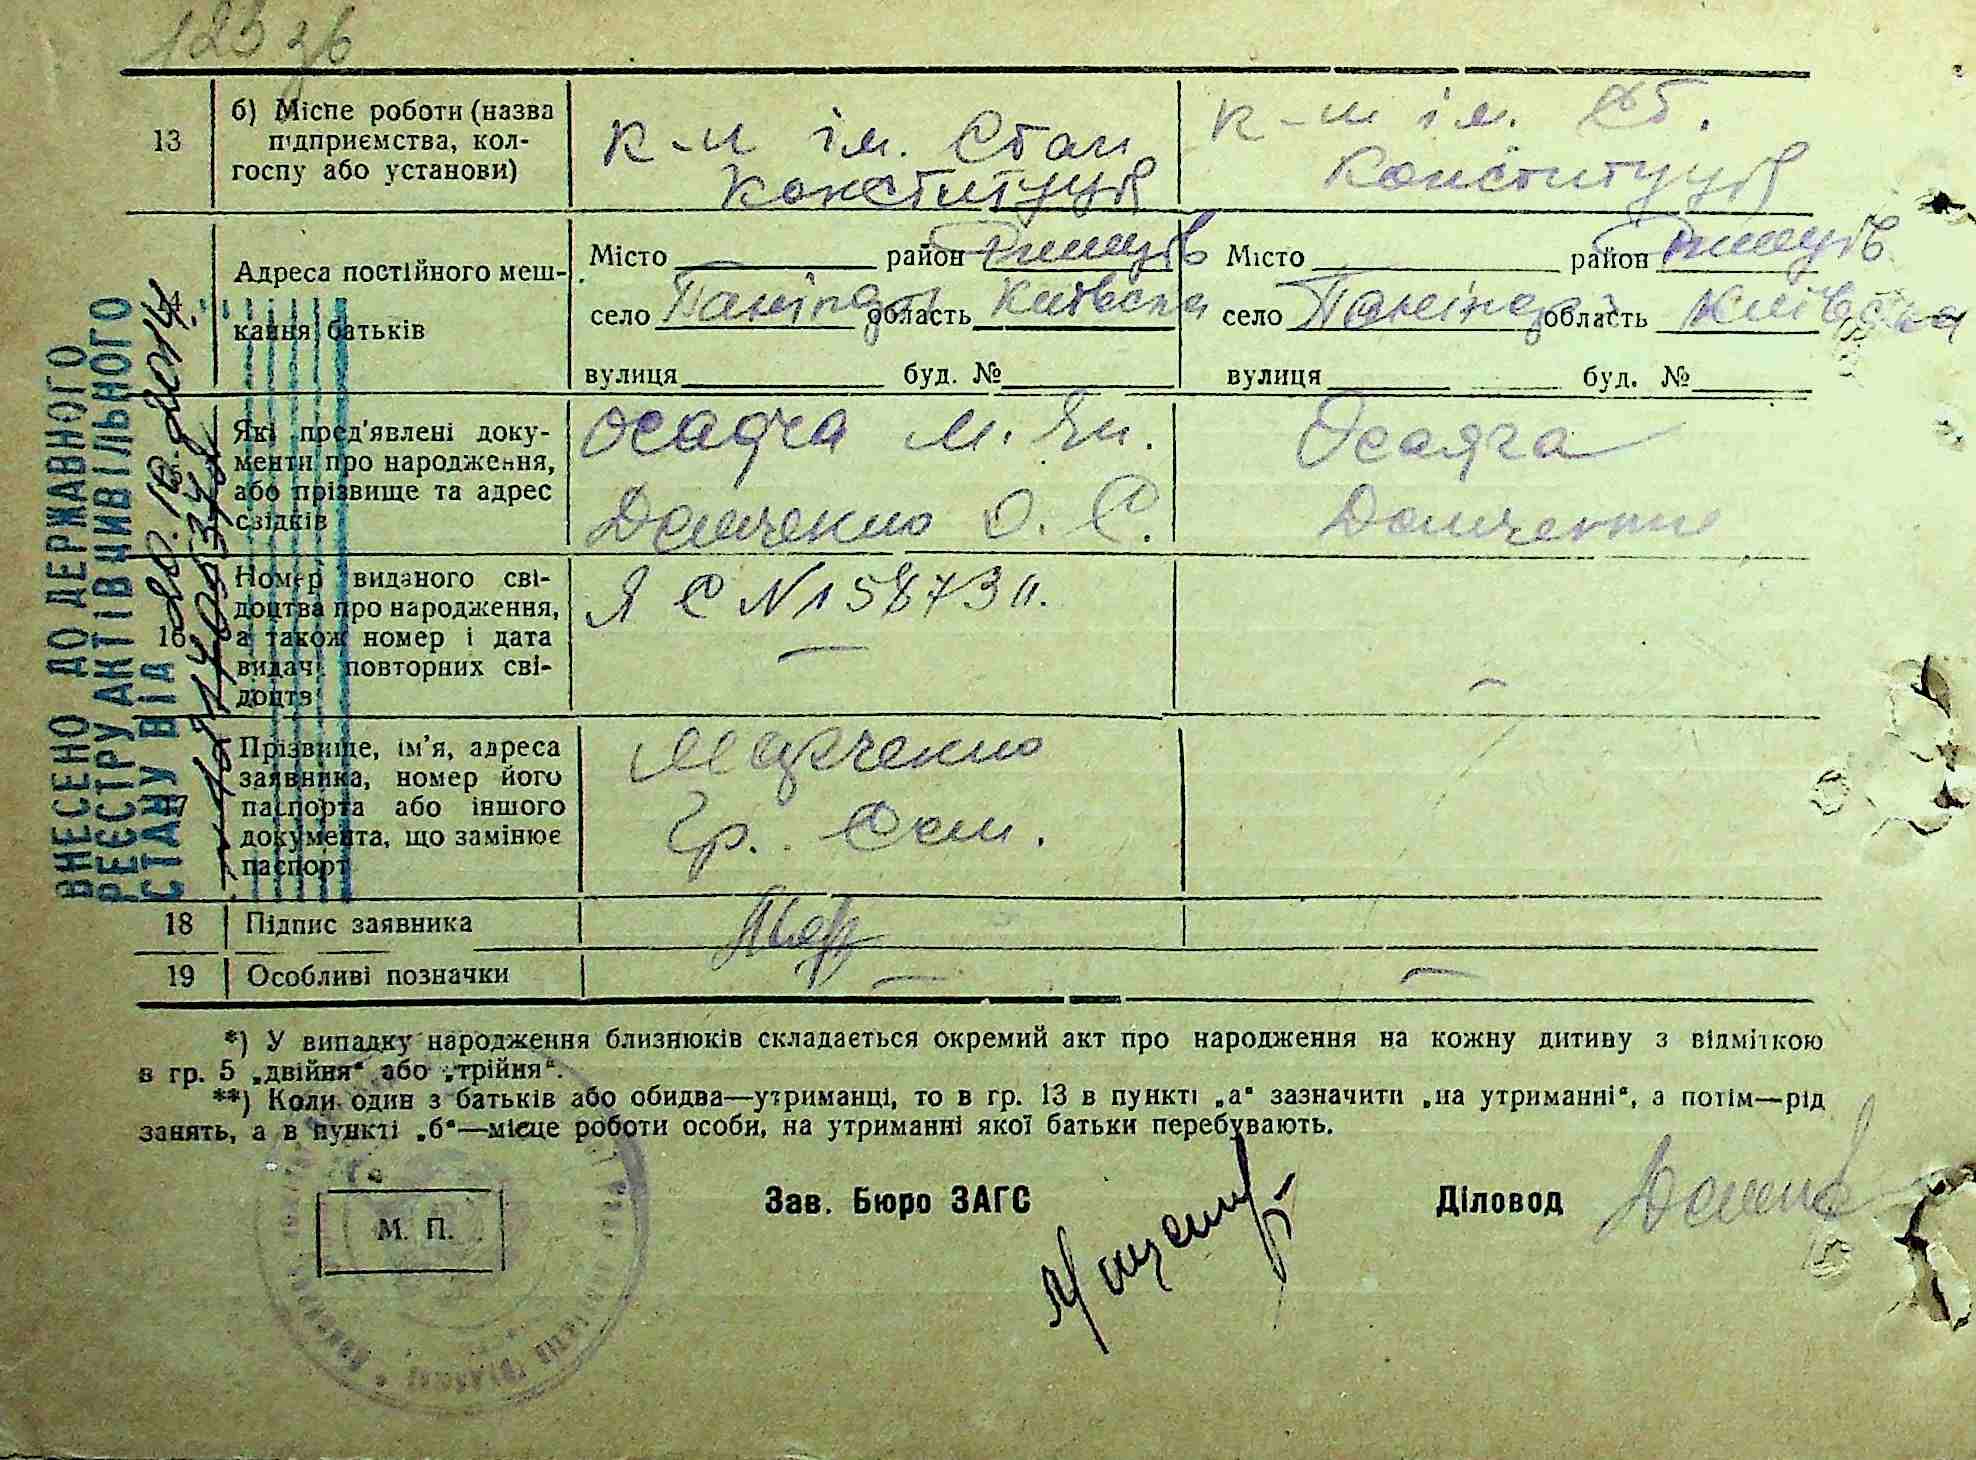 123 зв
13
б) Місце роботи (назва
підприємства, кол-
госпу або установи)
к-п ім. Стал
Конституції
к-п ім. Ст.
Конституції
14
Адреса постійного меш-
кання батьків
Місто район Ржищів
село область Київська
вулиця буд. №
Місто район Ржищів
село область Київська
вулиця буд. №
15
Які пред'явлені доку-
менти про народження,
або прізвище та адрес
свідків
Осадча М. Як.
Демченко О. С.
Осадча
Демченко
16
Номер виданого сві-
доцтва про народження,
а також номер і дата
видачі повторних сві-
доцтв
Я С №
17
Прізвище, ім'я, адреса
заявника, номер його
паспорта або іншого
документа, що замінює
паспорт
Гр.
18
Підпис заявника
19
Особливі позначки
ВНЕСЕНО ДО ДЕРЖАВНОГО
РЕЄСТРУ АКТІВ ЦИВІЛЬНОГО
СТАНУ ВІД
*) У випадку народження близнюків складається окремий акт про народження на кожну дитину з відміткою
в гр. 5 „двійня“ або „трійня“.
**) Коли один з батьків або обидва—утриманці, то в гр. 13 в пункті „а“ зазначити „на утриманні“, а потім—рід
занять, а в пункті „б“—місце роботи особи, на утриманні якої батьки перебувають.
М. П.
Зав. Бюро ЗАГС
Діловод